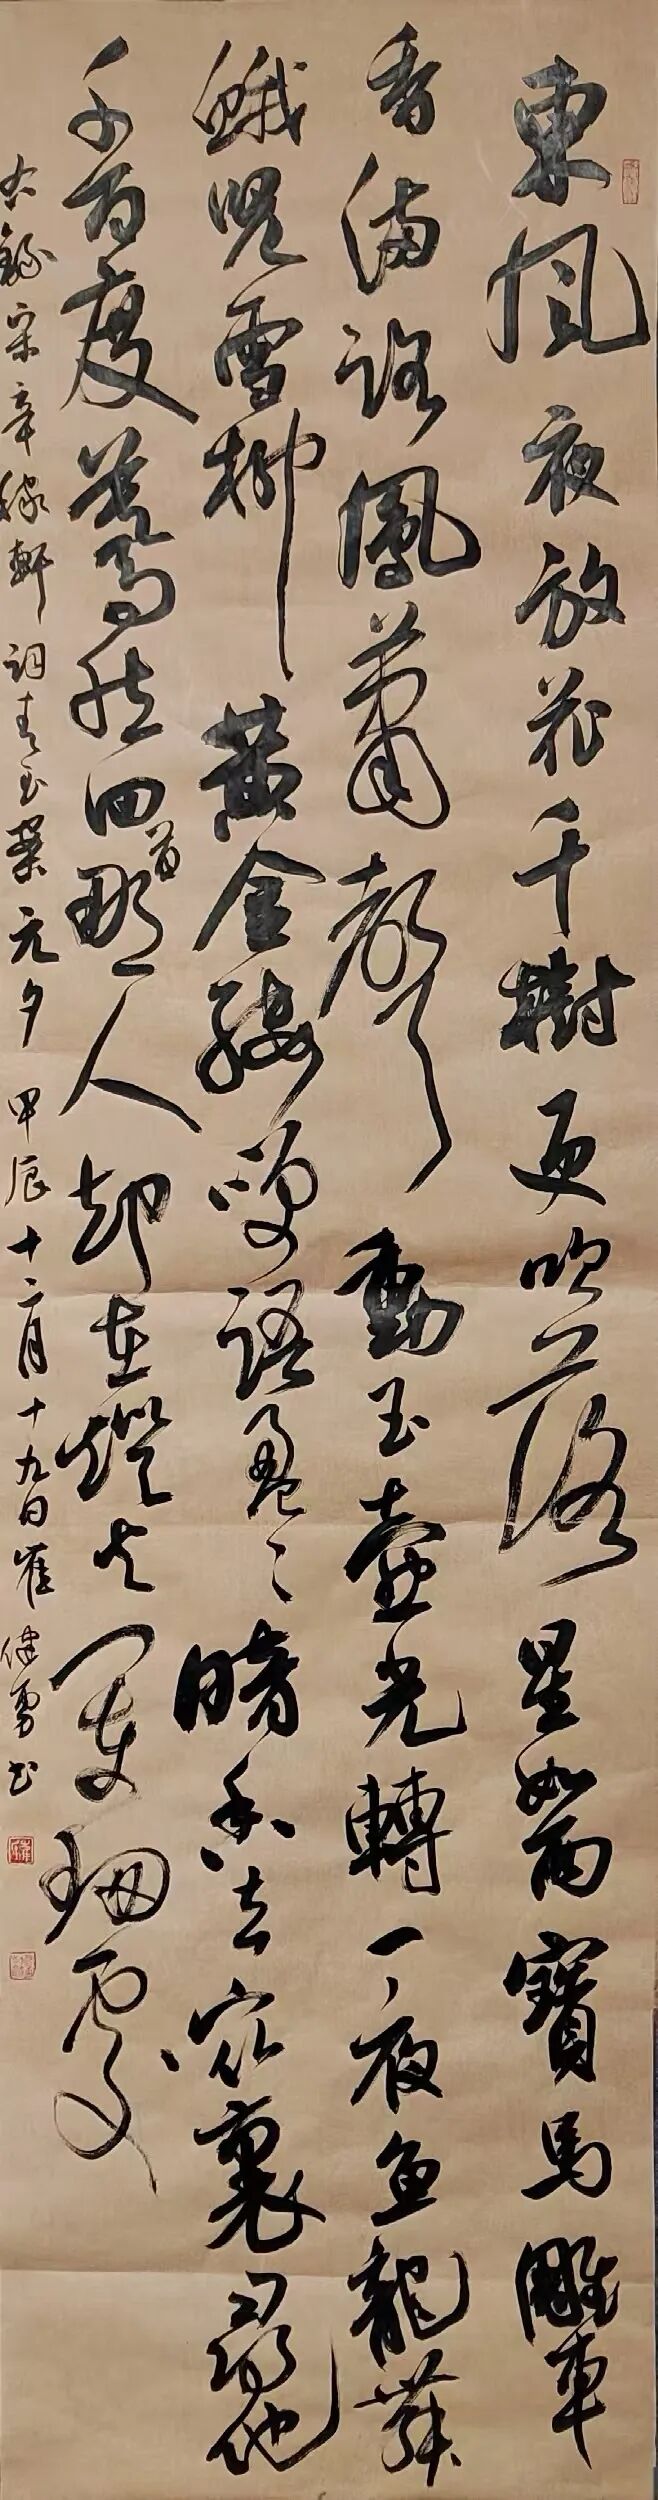 東風夜放花千樹更吹落星如雨寳馬雕車
香滿路鳳蕭聲動玉壺光轉一夜魚龍舞
蛾兒雪柳黃金縷笑語盈〻暗香去衆裏尋他
千百度驀然回首那人却在燈火闌珊處
右錄宋辛稼軒詞青玉案元夕 甲辰十二月十九日崔健勇書